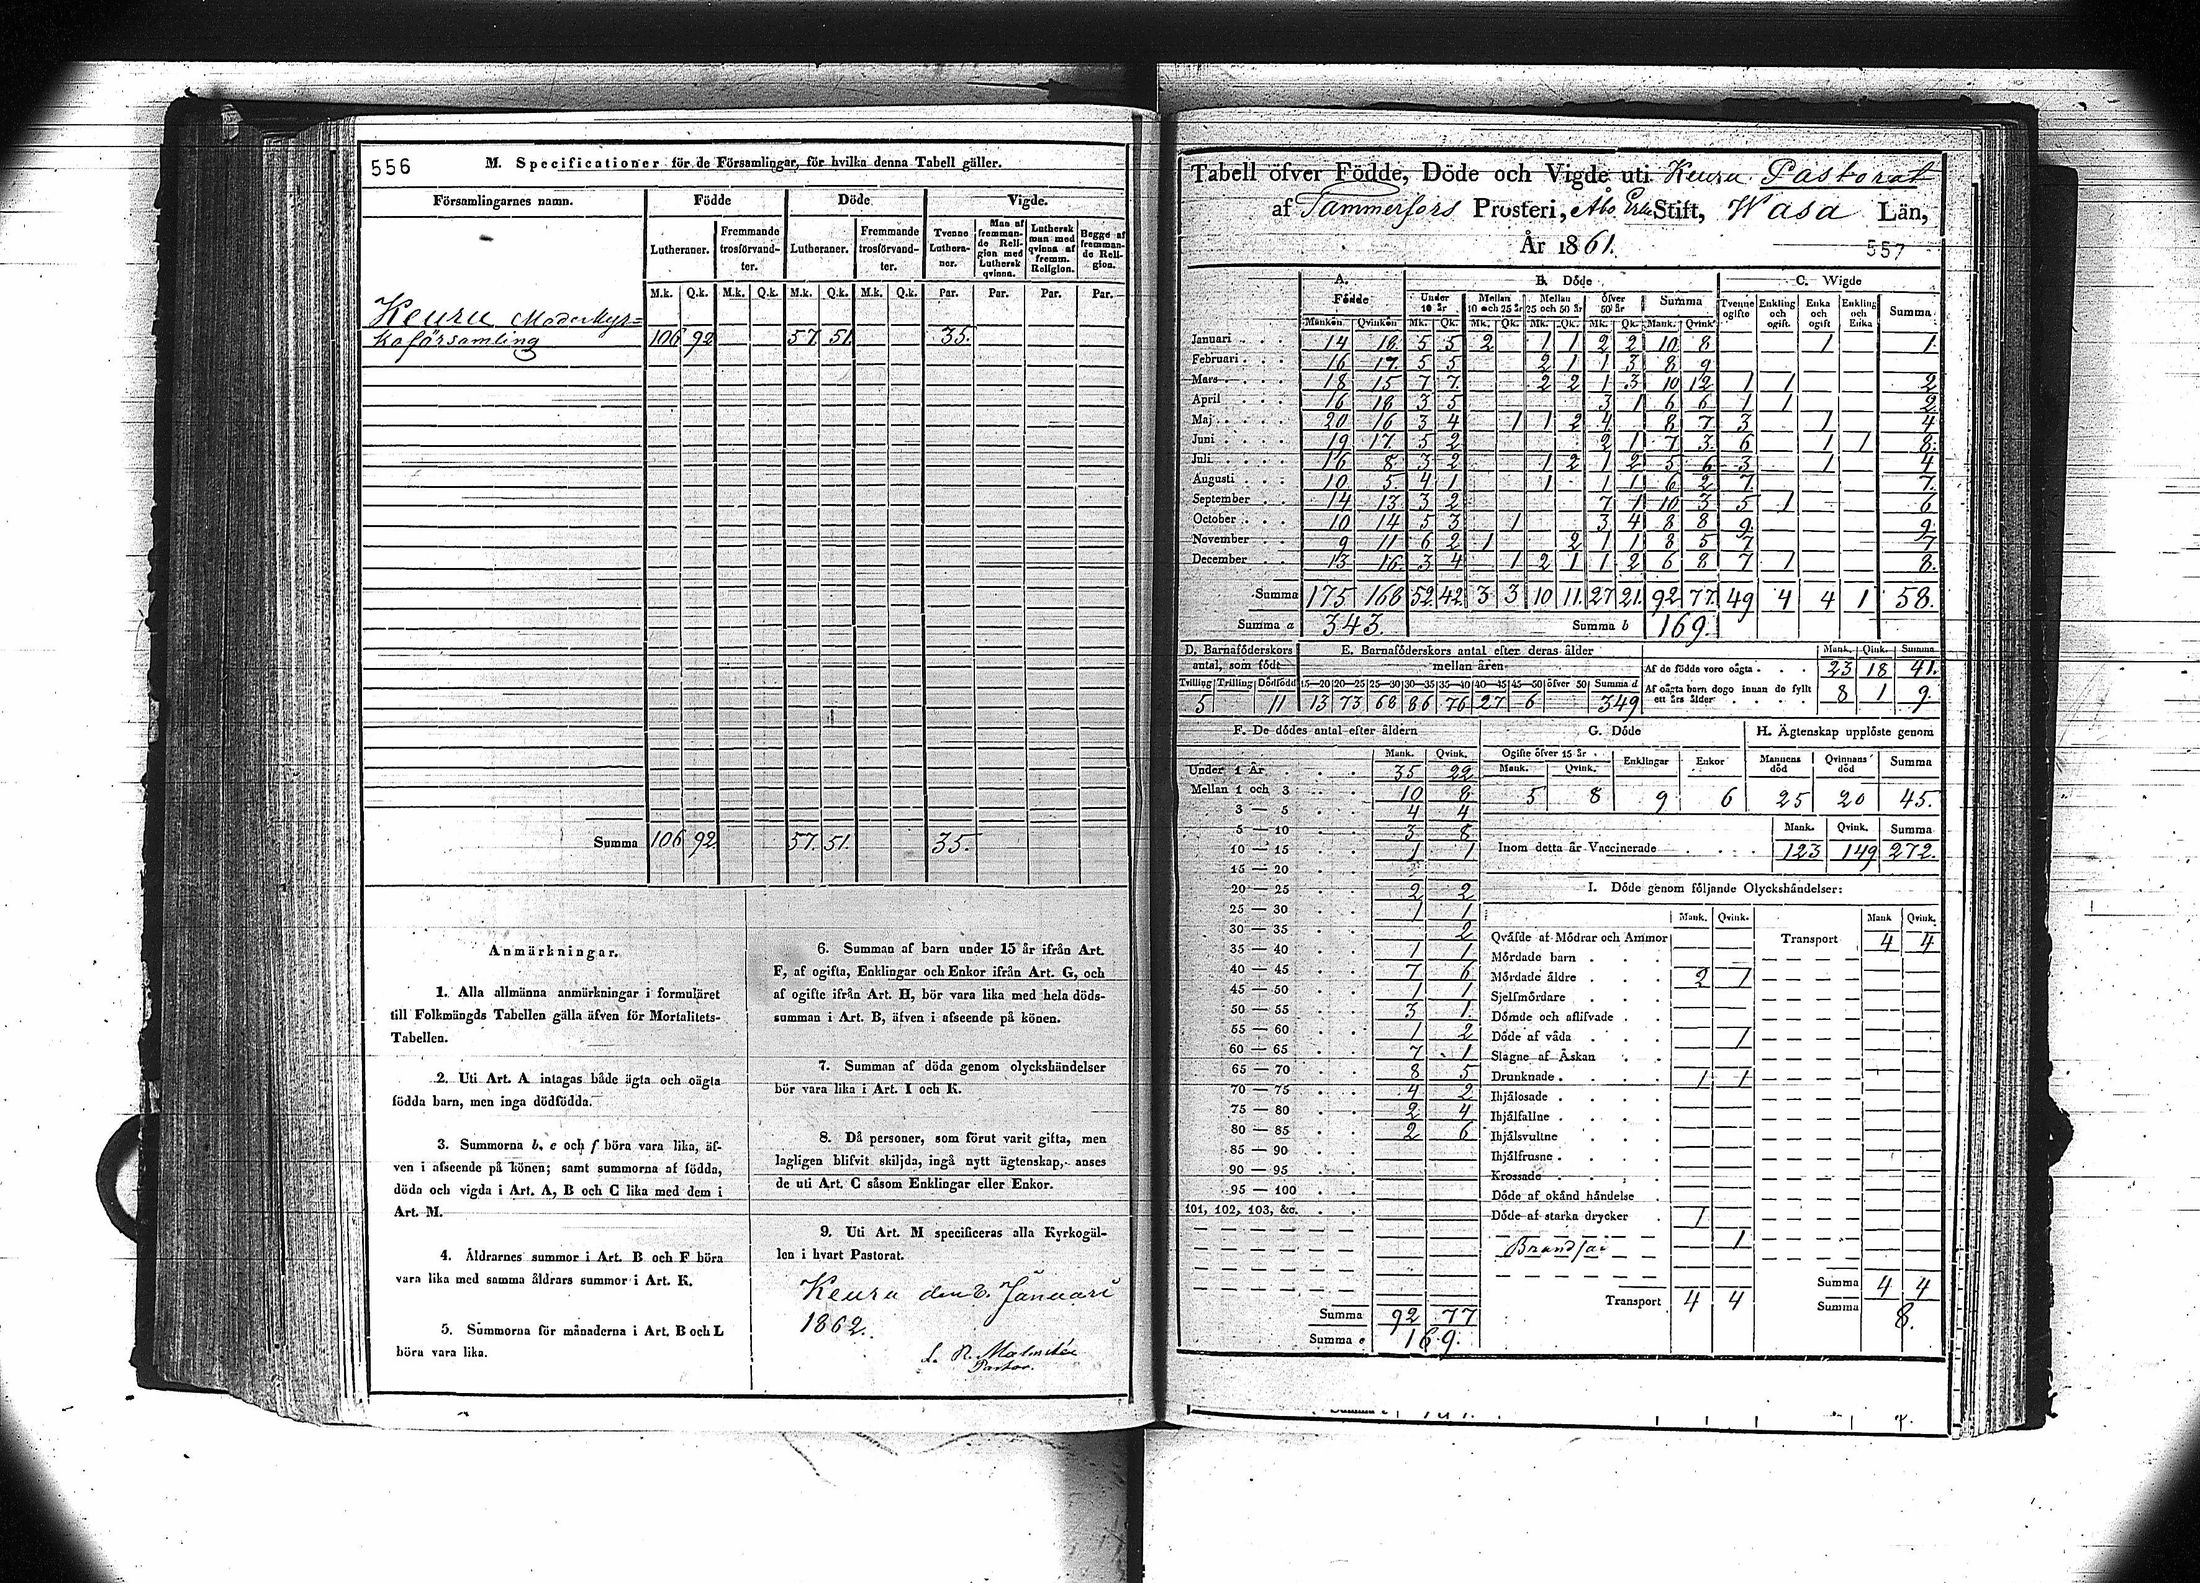 556
M. Specificationer för de Församlingar, för hvilka denna Tabell gäller.
Församlingarnes namn. Födde Döde Vigde.
Lutheraner. Fremmande trosförvandter. Lutheraner. Fremmande trosförvandter. Tvenne Lutheraner. Man af fremmande Religion med Luthersk qvinna. Luthersk man med qvinna af fremm. Religion. Begge af fremmande Religion.
M.k. Q.k. M.k. Q.k. M.k. Q.k. M.k. Q.k. Par. Par. Par. Par.
Keuru Moderkyr=
koförsamling 106 92 57. 51. 35.
Summa 106 92. 57. 51. 35.
Anmärkningar.
1. Alla allmänna anmärkningar i formuläret
till Folkmängds Tabellen gälla äfven för Mortalitets-
Tabellen.
2. Uti Art. A intagas både ägta och oägta
födda barn, men inga dödfödda.
3. Summorna b, e och f böra vara lika, äf-
ven i afseende på könen; samt summorna af födda,
döda och vigda i Art. A, B och C lika med dem i
Art. M.
4. Åldrarnes summor i Art. B och F böra
vara lika med samma åldrars summor i Art. K.
5. Summorna för månaderna i Art. B och L
böra vara lika.
6. Summan af barn under 15 år ifrån Art.
F, af ogifta, Enklingar och Enkor ifrån Art. G, och
af ogifte ifrån Art. H, bör vara lika med hela döds-
summan i Art. B, äfven i afseende på könen.
7. Summan af döda genom olyckshändelser
bör vara lika i Art. I och K.
8. Då personer, som förut varit gifta, men
lagligen blifvit skiljda, ingå nytt ägtenskap, anses
de uti Art. C såsom Enklingar eller Enkor.
9. Uti Art. M specificeras alla Kyrkogäl-
len i hvart Pastorat.
Keuru den 6. Januari
1862.
Pastor.
Tabell öfver Födde, Döde och Vigde uti Keuru Pastorat
af Tammerfors Prosteri, Åbo Erke Stift, Wasa Län,
År 1861.
557
A. Födde B. Döde C. Wigde
Under 10 år Mellan 10 och 25 år Mellan 25 och 50 år Öfver 50 år Summa Tvenne ogifte Enkling och ogift. Enka och ogift Enkling och Enka Summa
Mankön Qvinkön Mk. Qk. Mk. Qk. Mk. Qk. Mk. Qk. Mank. Qvink.
Januari 14 18 5 5 2 1 1 2 2 10 8 1 1.
Februari 16 17. 5 5 2 1 1 3 8 9
Mars 18 15 7 7 2 2 1 3 10 12 1 1 2
April 16 18 3 5 3 1 6 6 1 1 2
Maj 20 16 3 4 1 1 2 4 8 7 3 1 4
Juni 19 17 5 2 2 1 7 3 6 1 1 8
Juli 16 8 3 2 1 2 1 2 5 6 3 1 4
Augusti 10 5 4 1 1 1 1 6 2 7 7.
September 14 13 3 2 7 1 10 3 5 1 6
October 10 14 5 3 1 3 4 8 8 9 9
November 9 11 6 2 1 2 1 1 8 5 7 7
December 13 16 3 4 1 2 1 1 2 6 8 7 1 8
Summa 175 168 52. 42. 3 3 10 11. 27 21. 92 77 49 4 4 1 58.
Summa a 343. Summa b 169.
D. Barnaföderskors antal, som födt
Tvilling Trilling Dödfödd
5 11
E. Barnaföderskors antal efter deras ålder
mellan åren
15—20 20—25 25—30 30—35 35—40 40—45 45—50 öfver 50 Summa d
13 73 68 86 76 27 6 349
Mank. Qink. Summa
Af de födde voro oägta 23 18 41.
Af oägta barn dogo innan de fyllt
ett års ålder 8 1 9.
F. De dödes antal efter åldern
Mank. Qvink.
Under 1 År 35 22
Mellan 1 och 3 10 8
3 — 5 4 4
5 — 10 3 8
10 — 15 1 1
15 — 20
20 — 25 2 2
25 — 30 1 1
30 — 35 2
35 — 40 1 1
40 — 45 7 6
45 — 50 1 1
50 — 55 3 1
55 — 60 1 2
60 — 65 7 1
65 — 70 8 5
70 — 75 4 2
75 — 80 2 4
80 — 85 2 6
85 — 90
90 — 95
95 — 100
101, 102, 103, &c.
Summa 92 77
Summa e 169.
G. Döde
Ogifte öfver 15 år Enklingar Enkor
Mank. Qvink.
5 8 9 6
H. Ägtenskap upplöste genom
Mannens död Qvinnans död Summa
25 20 45.
Mank. Qvink. Summa
Inom detta år Vaccinerade 123 149 272.
I. Döde genom följande Olyckshändelser:
Mank. Qvink. Mank Qvink.
Qväfde af Mödrar och Ammor Transport 4 4
Mördade barn
Mördade äldre 2 1
Sjelfmördare
Dömde och aflifvade
Döde af våda 1
Slagne af Åskan
Drunknade 1 1
Ihjälosade
Ihjälfallne
Ihjälsvultne
Ihjälfrusne
Krossade
Döde af okänd händelse
Döde af starka drycker 1
1
Summa 4 4
Transport 4 4 Summa 8.